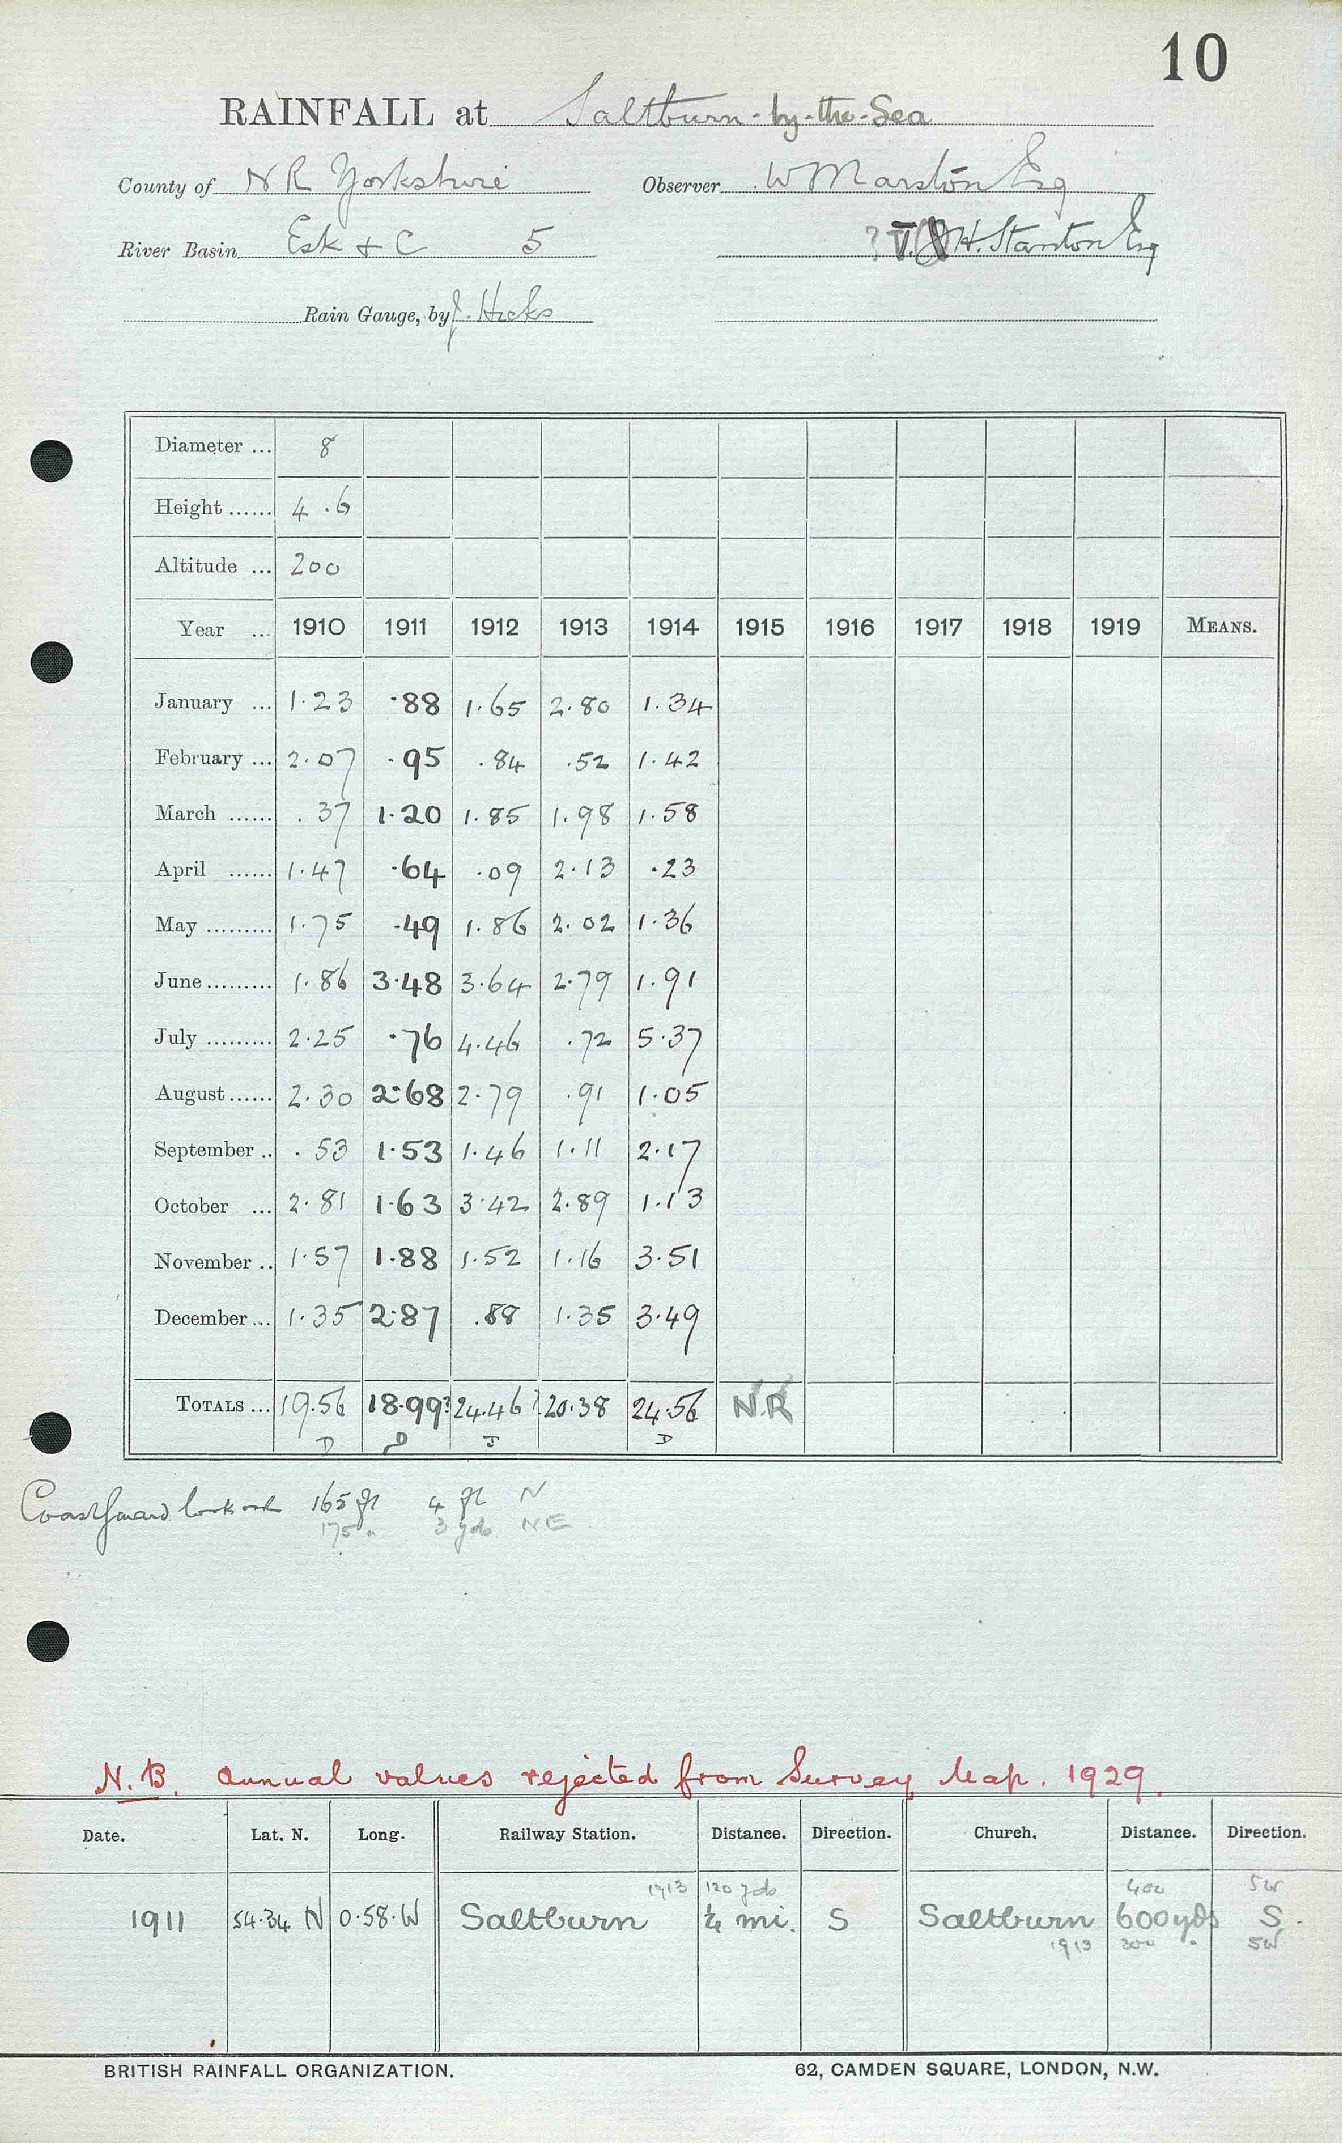 10
RAINFALL at Saltburn-by-the-Sea
County of N R Yorkshire Observer W Marston Esq
River Basin Esk & C 5 ? T. H. Stanton Esq
Rain Gauge, by J. Hicks
Diameter ... 8
Height ...... 4 .6
Altitude ... 200
Year ... 1910 1911 1912 1913 1914 1915 1916 1917 1918 1919 MEANS.
January ... 1.23 .88 1.65 2.80 1.34
February ... 2.07 .95 .84 .52 1.42
March ...... .37 1.20 1.85 1.98 1.58
April ...... 1.47 .64 .09 2.13 .23
May ......... 1.75 .49 1.86 2.02 1.36
June ......... 1.86 3.48 3.64 2.79 1.91
July ......... 2.25 .76 4.46 .72 5.37
August ...... 2.30 2.68 2.79 .91 1.05
September .. .53 1.53 1.46 1.11 2.17
October ... 2.81 1.63 3.42 2.89 1.13
November .. 1.57 1.88 1.52 1.16 3.51
December ... 1.35 2.87 .88 1.35 3.49
TOTALS ... 19.56 18.99? 24.46? 20.38 24.56 N.R
D D J D
Coastguard look out 165 ft 4 ft N
175 " 3 yds NE
N.B. Annual values rejected from Survey Map. 1929.
Date. Lat. N. Long. Railway Station. Distance. Direction. Church. Distance. Direction.
1913 120 yds 400 SW
1911 54.34 N 0.58.W Saltburn ¼ mi. S Saltburn 600yds S.
1913 300 " SW
BRITISH RAINFALL ORGANIZATION. 62, CAMDEN SQUARE, LONDON, N.W.